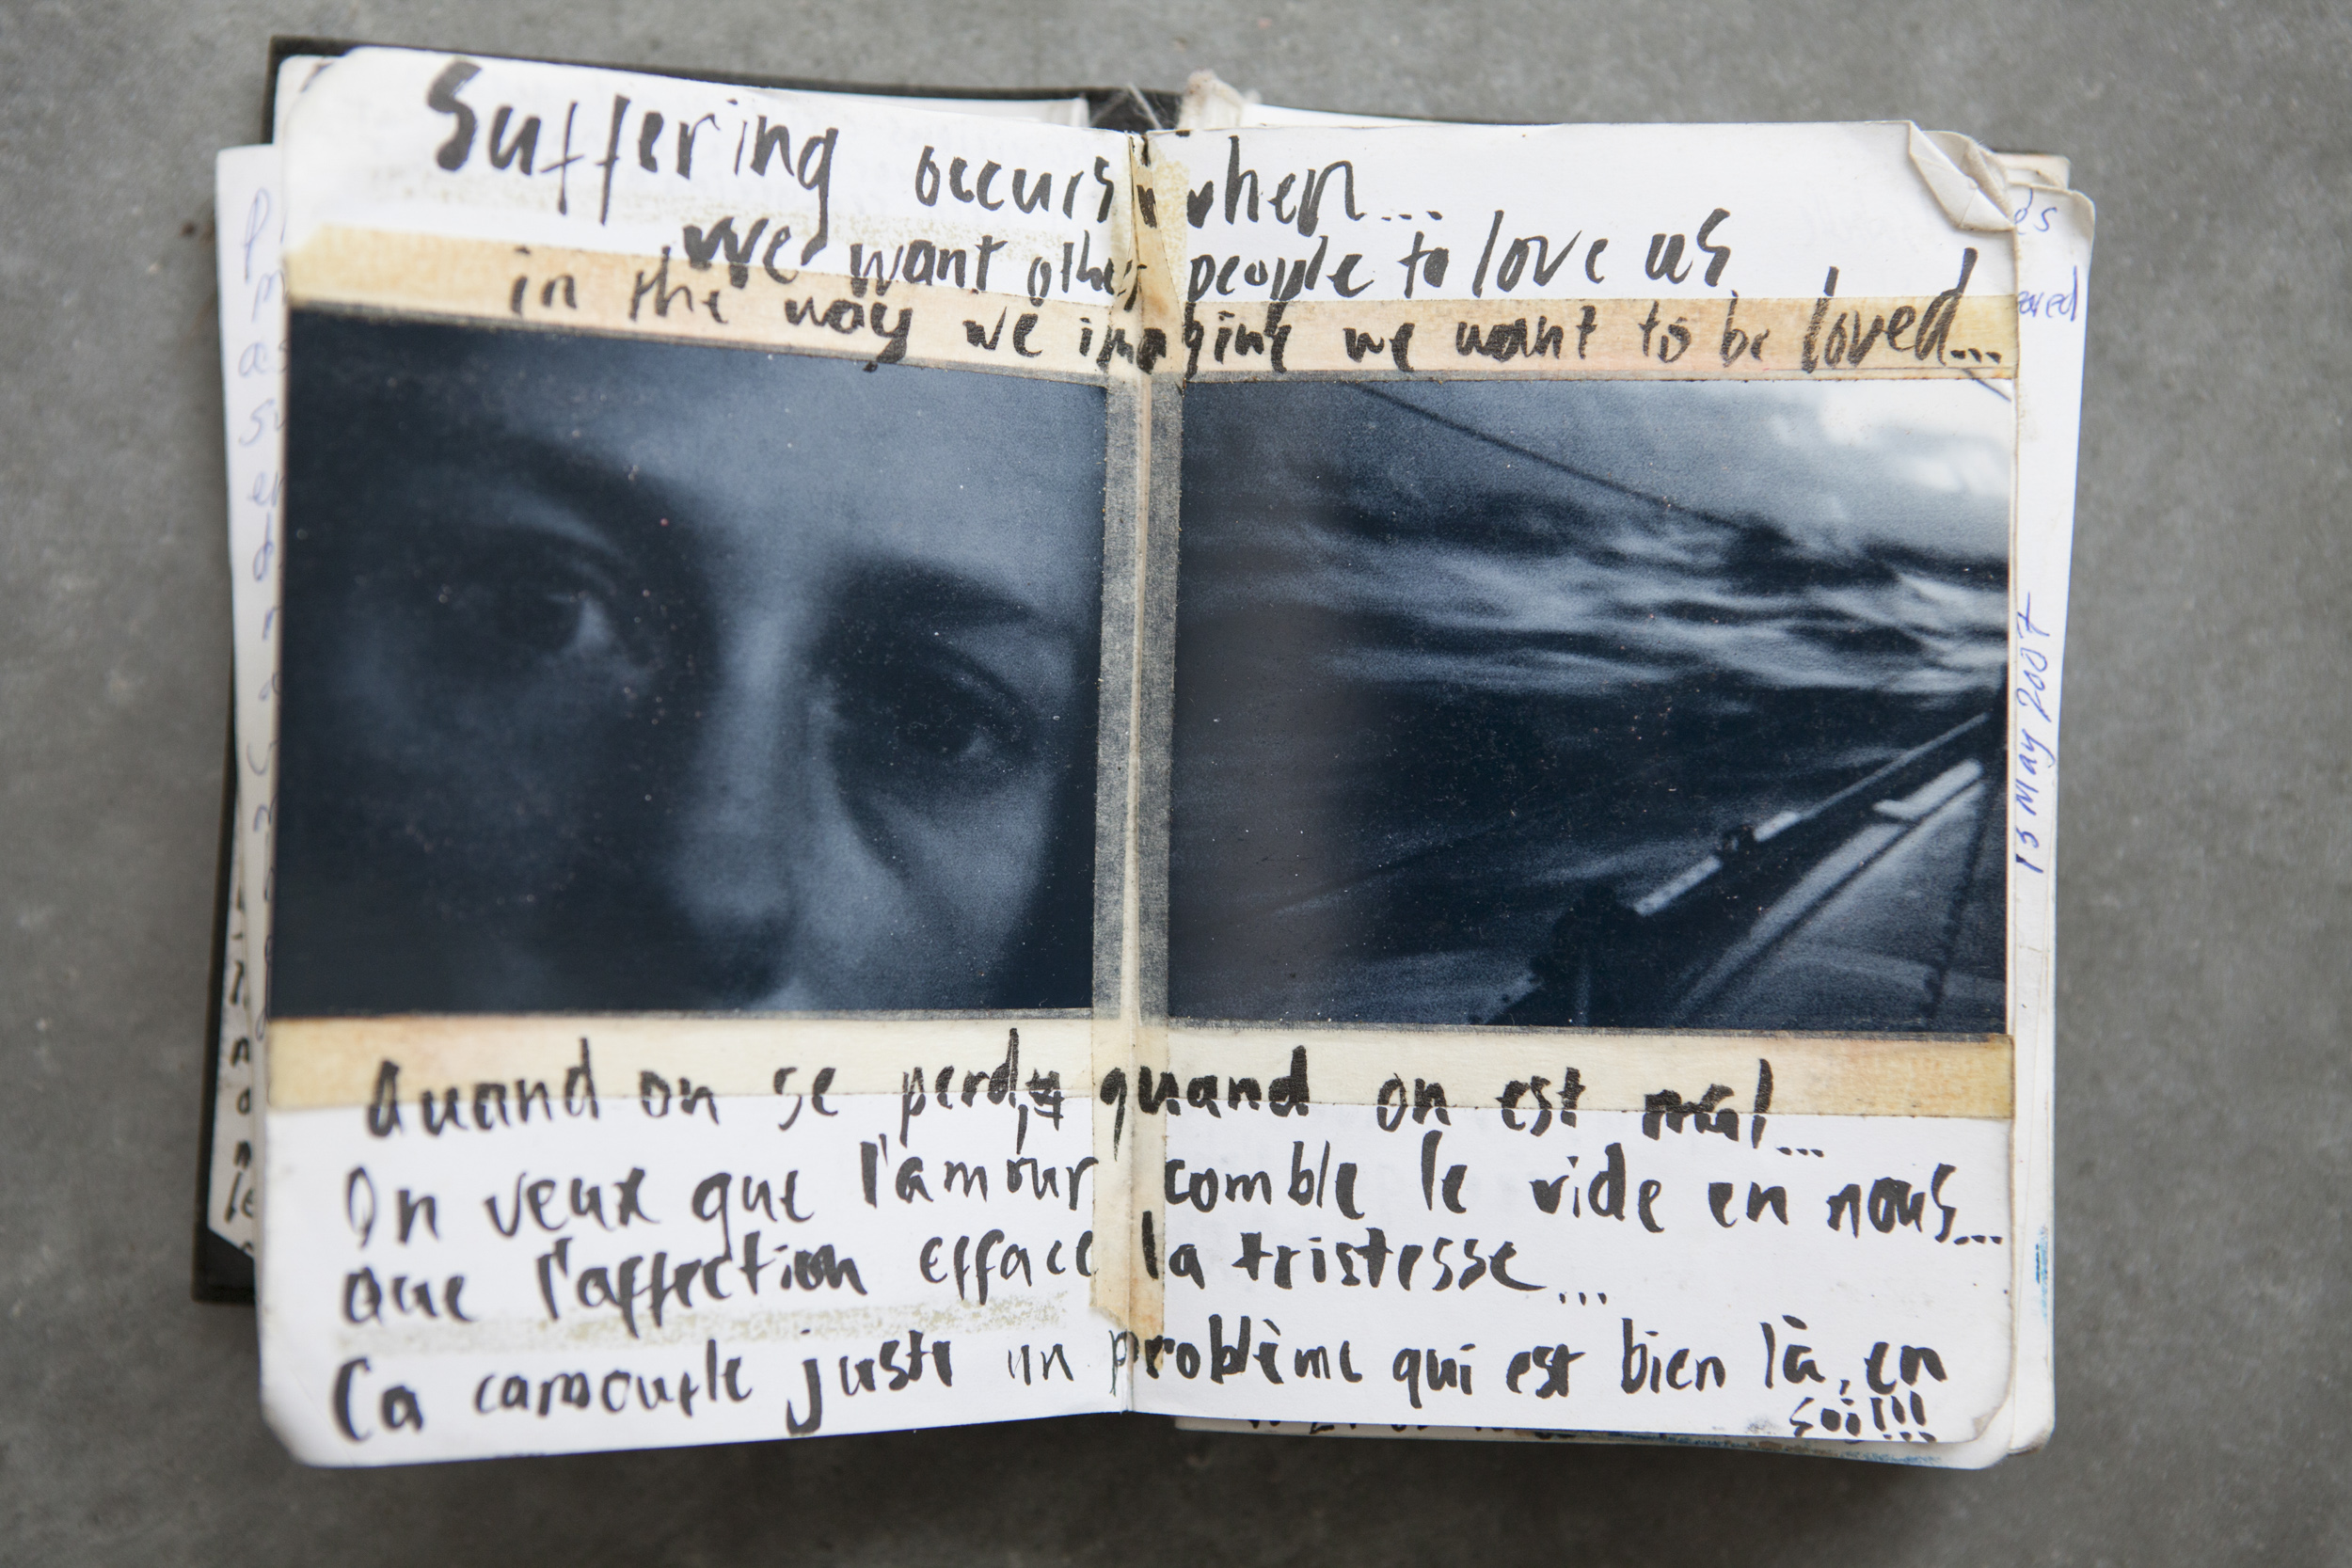 Suffering occurs when...
we want other people to love us
in the way we imagine we want to be loved...
Quand on se perd, quand on est mal...
On veux que l'amour comble le vide en nous...
que l'affection efface la tristesse...
Ca camoufle juste un problème qui est bien là, en
soi!!!
13 May 2007